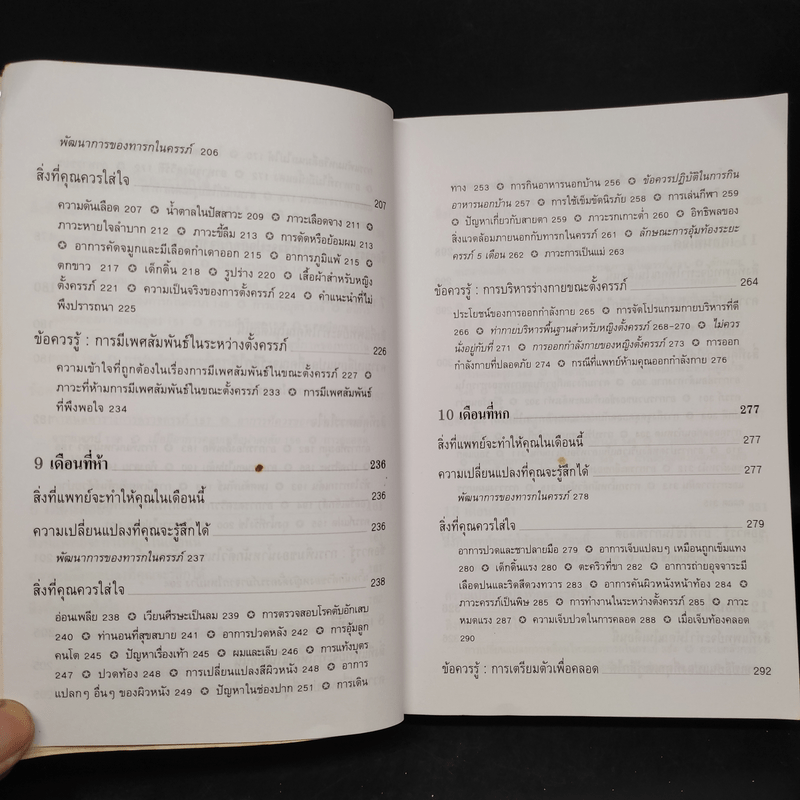 พัฒนาการของทารกในครรภ์ 206
สิ่งที่คุณควรใส่ใจ 207
ความดันเลือด 207 ✪ น้ำตาลในปัสสาวะ 209 ✪ ภาวะเลือดจาง 211 ✪
ภาวะหายใจลำบาก 212 ✪ ภาวะขี้ลืม 213 ✪ การดัดหรือย้อมผม 213
✪ อาการคัดจมูกและมีเลือดกำเดาออก 215 ✪ อาการภูมิแพ้ 215 ✪
ตกขาว 217 ✪ เด็กดิ้น 218 ✪ รูปร่าง 220 ✪ เสื้อผ้าสำหรับหญิง
ตั้งครรภ์ 221 ✪ ความเป็นจริงของการตั้งครรภ์ 224 ✪ คำแนะนำที่ไม่
พึงปรารถนา 225
ข้อควรรู้ : การมีเพศสัมพันธ์ในระหว่างตั้งครรภ์ 226
ความเข้าใจที่ถูกต้องในเรื่องการมีเพศสัมพันธ์ในขณะตั้งครรภ์ 227 ✪
ภาวะที่ห้ามการมีเพศสัมพันธ์ในขณะตั้งครรภ์ 233 ✪ การมีเพศสัมพันธ์
ที่พึงพอใจ 234
9 เดือนที่ห้า 236
สิ่งที่แพทย์จะทำให้คุณในเดือนนี้ 236
ความเปลี่ยนแปลงที่คุณจะรู้สึกได้ 236
พัฒนาการของทารกในครรภ์ 237
สิ่งที่คุณควรใส่ใจ 238
อ่อนเพลีย 238 ✪ เวียนศีรษะเป็นลม 239 ✪ การตรวจสอบโรคตับอักเสบ
240 ✪ ท่านอนที่สุขสบาย 241 ✪ อาการปวดหลัง 242 ✪ การอุ้มลูก
คนโต 245 ✪ ปัญหาเรื่องเท้า 245 ✪ ผมและเล็บ 245 ✪ การแท้งบุตร
247 ✪ ปวดท้อง 248 ✪ การเปลี่ยนแปลงสีผิวหนัง 248 ✪ อาการ
แปลกๆ อื่นๆ ของผิวหนัง 249 ✪ ปัญหาในช่องปาก 251 ✪ การเดิน
ทาง 253 ✪ การกินอาหารนอกบ้าน 256 ✪ ข้อควรปฏิบัติในการกิน
อาหารนอกบ้าน 257 ✪ การใช้เข็มขัดนิรภัย 258 ✪ การเล่นกีฬา 259
✪ ปัญหาเกี่ยวกับสายตา 259 ✪ ภาวะรกเกาะต่ำ 260 ✪ อิทธิพลของ
สิ่งแวดล้อมภายนอกกับทารกในครรภ์ 261 ✪ ลักษณะการอุ้มท้องระยะ
ครรภ์ 5 เดือน 262 ✪ ภาวะการเป็นแม่ 263
ข้อควรรู้ : การบริหารร่างกายขณะตั้งครรภ์ 264
ประโยชน์ของการออกกำลังกาย 265 ✪ การจัดโปรแกรมกายบริหารที่ดี
266 ✪ ท่ากายบริหารพื้นฐานสำหรับหญิงตั้งครรภ์ 268-270 ✪ ไม่ควร
นั่งอยู่กับที่ 271 ✪ การออกกำลังกายของหญิงตั้งครรภ์ 273 ✪ การออก
กำลังกายที่ปลอดภัย 274 ✪ กรณีที่แพทย์ห้ามคุณออกกำลังกาย 276
10 เดือนที่หก 277
สิ่งที่แพทย์จะทำให้คุณในเดือนนี้ 277
ความเปลี่ยนแปลงที่คุณจะรู้สึกได้ 277
พัฒนาการของทารกในครรภ์ 278
สิ่งที่คุณควรใส่ใจ 279
อาการปวดและชาปลายมือ 279 ✪ อาการเจ็บแปลบๆ เหมือนถูกเข็มแทง
280 ✪ เด็กดิ้นแรง 280 ✪ ตะคริวที่ขา 282 ✪ อาการถ่ายอุจจาระมี
เลือดปนและริดสีดวงทวาร 283 ✪ อาการคันผิวหนังหน้าท้อง 284 ✪
ภาวะครรภ์เป็นพิษ 285 ✪ การทำงานในระหว่างตั้งครรภ์ 285 ✪ ภาวะ
หมดแรง 287 ✪ ความเจ็บปวดในการคลอด 288 ✪ เมื่อเจ็บท้องคลอด
290
ข้อควรรู้ : การเตรียมตัวเพื่อคลอด 292